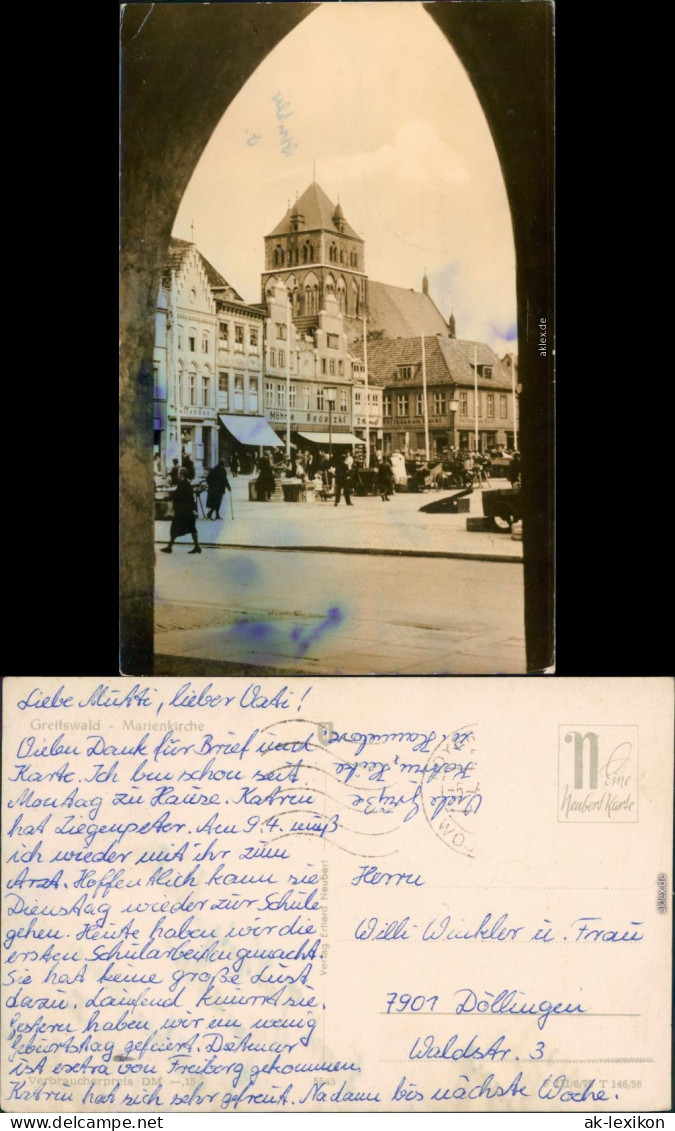 Möhne Radatzki
Liebe Mutti, lieber Vati!
Greifswald - Marienkirche
Vielen Dank für Brief und
Karte. Ich bin schon seit
Montag zu Hause. Katrin
hat Ziegenpeter. Am 9.4. muß
ich wieder mit ihr zum
Arzt. Hoffentlich kann sie
Dienstag wieder zur Schule
gehen. Heute haben wir die
ersten Schularbeiten gemacht.
Sie hat keine große Lust
dazu. Laufend knurrt sie.
Gestern haben wir ein wenig
Geburtstag gefeiert. Dietmar
ist extra von Freiberg gekommen.
Katrin hat sich sehr gefreut. Na dann bis nächste Woche.
Verbraucherpreis DM —,15
Viele Grüße
Katrin, Heike
Verlag Erhard Neubert
Eine
Neubert Karte
Herrn
Willi Winkler u. Frau
7901 Döllingen
Waldstr. 3
T 146/58
aklex.de
aklex.de
ak-lexikon